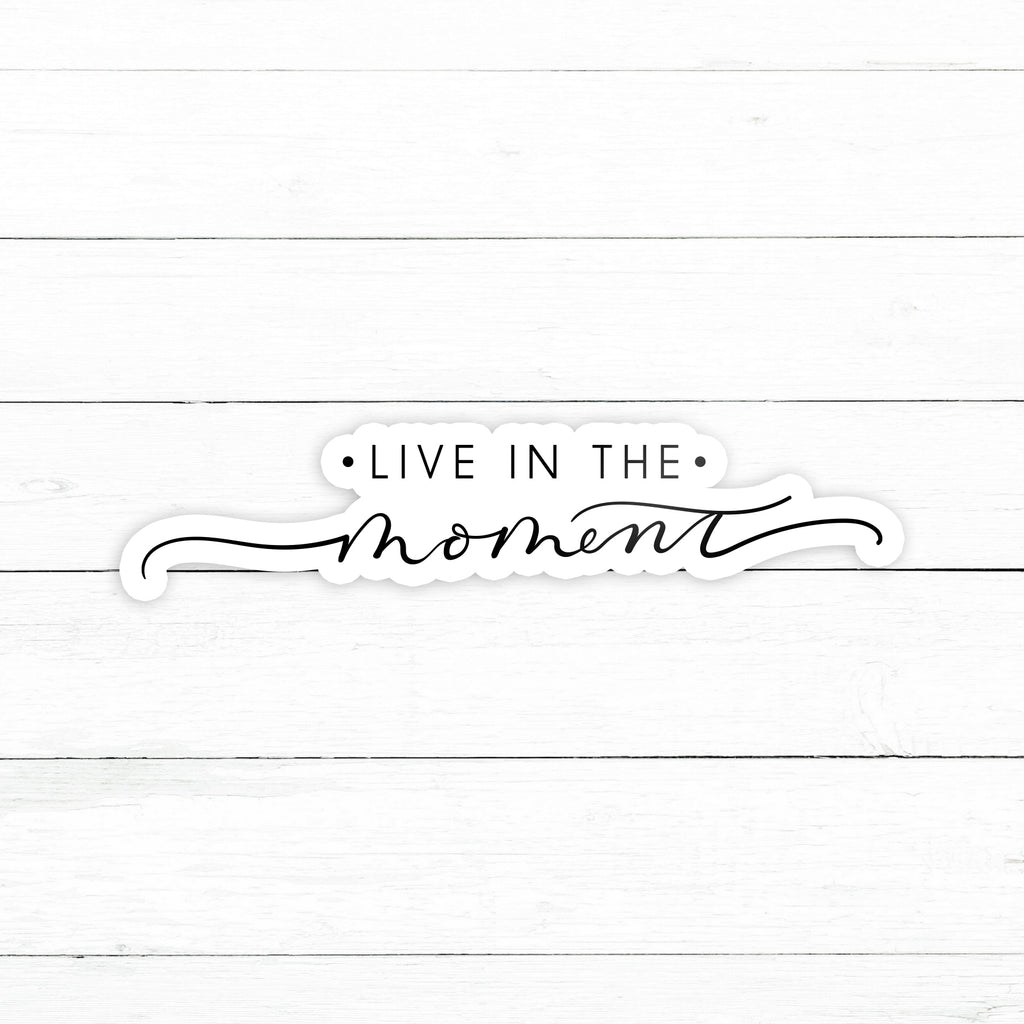 • LIVE IN THE •
moment